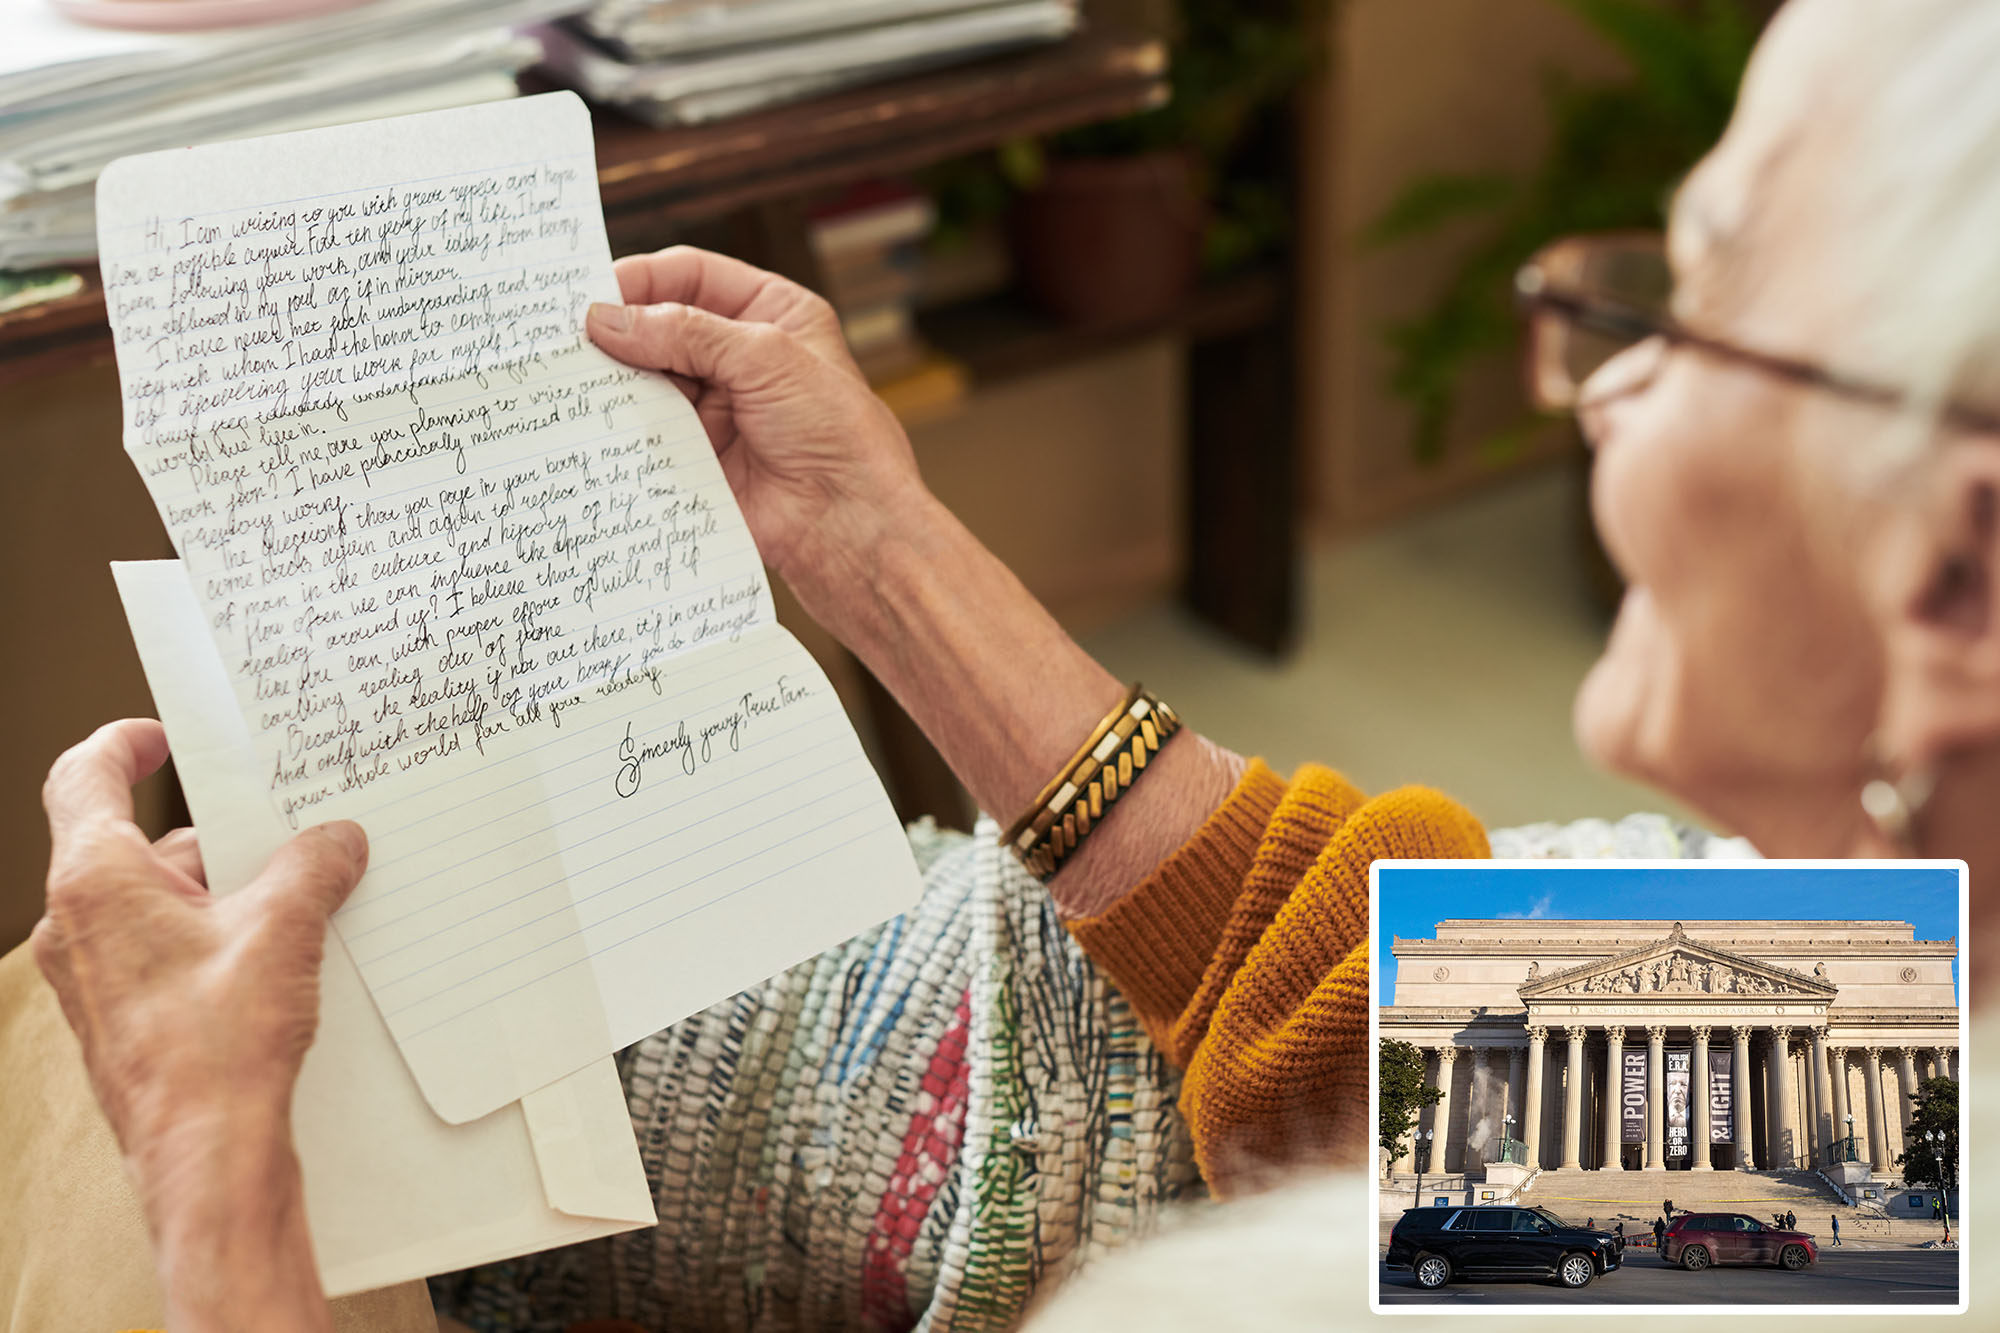 Hi, I am writing to you with great respect and hope
for a possible answer. For ten years of my life, I have
been following your work, and your ideas from books
are reflected in my soul as if in mirror.
I have never met such understanding and recipro
city with whom I had the honor to communicate, so
by discovering your work for myself, I took a
huge step towards understanding myself and
world we live in.
Please tell me, are you planning to write another
book soon? I have practically memorized all your
previous works.
The questions that you pose in your books make me
come back again and again to reflect on the place
of man in the culture and history of his time.
How often we can influence the appearance of the
reality around us? I believe that you and people
like you can, with proper effort of will, as if
carving reality out of stone.
Because the reality is not out there, it's in our heads
And only with the help of your books you do change
your whole world for all your readers.
Sincerly yours, True Fan.
ARCHIVES OF THE UNITED STATES OF AMERICA
POWER
PUBLISH
E.R.A.
HERO
OR
ZERO
& LIGHT